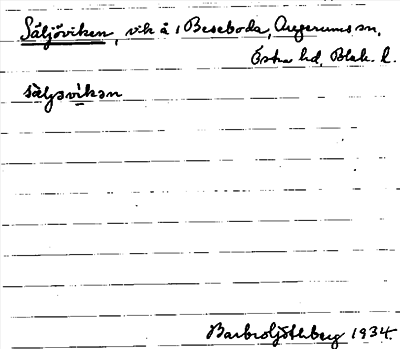 Säljöviken, vik å 1 Beseboda, Augerums sn,
Östra hd, Blek. l.
sàljəvìkən
Barbro Ljóthberg 1934.